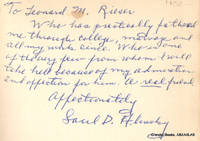 To Leonard M. Rieser
Who has practically fathered
me through college, marriage and
all my work since. Who is one
of the very few from whom I will
take hell because of my admiration
and affection for him. A real friend
Affectionately
Saul D. Alinsky